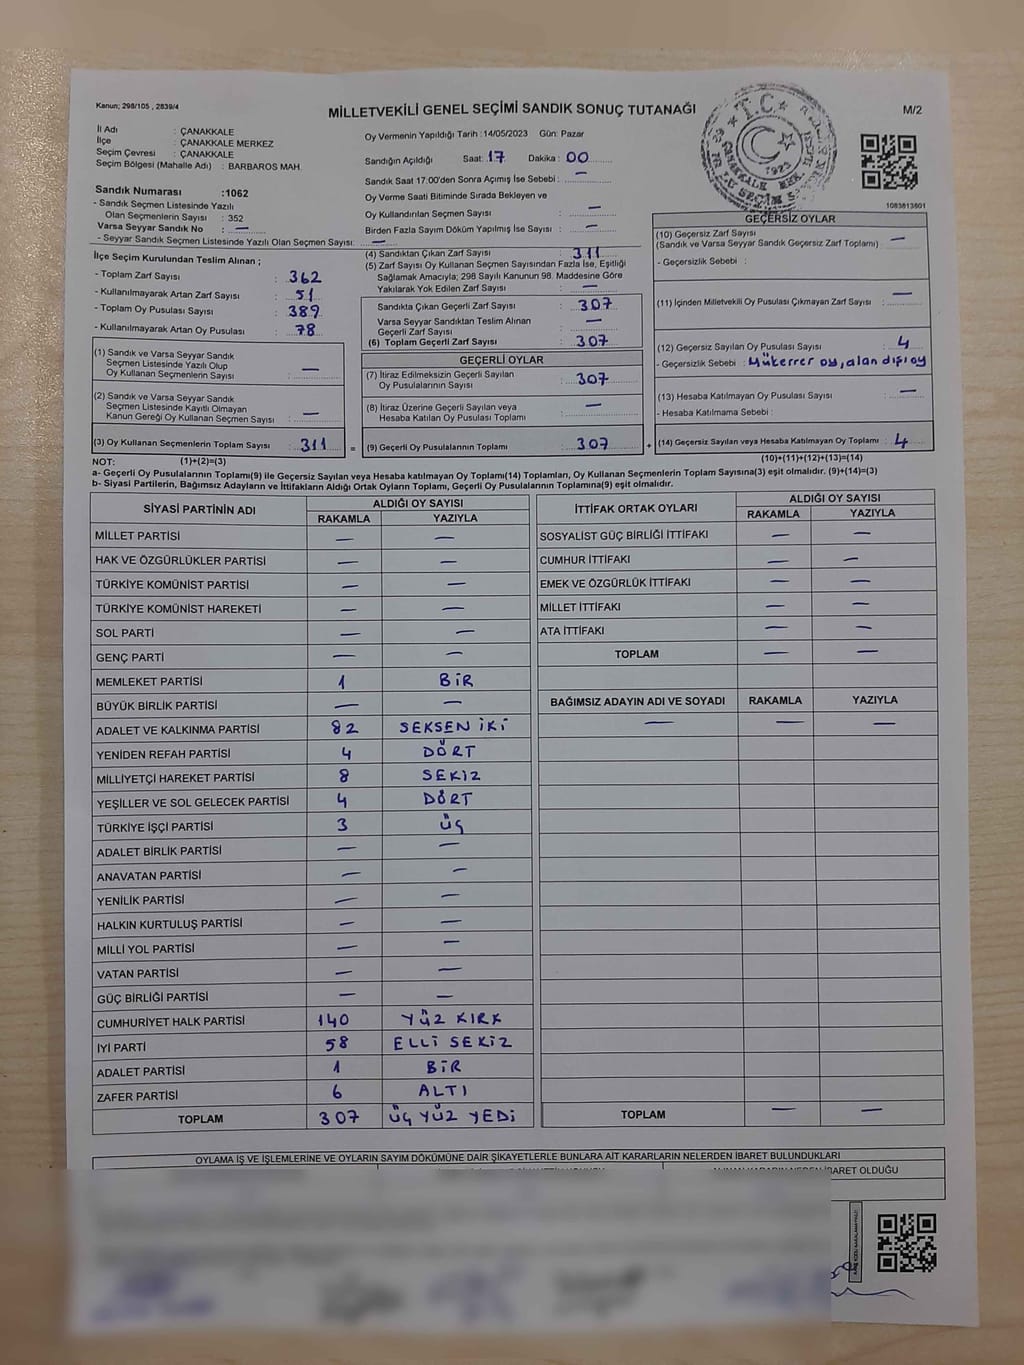 Kanun; 298/105 , 2839/4
MİLLETVEKİLİ GENEL SEÇİMİ SANDIK SONUÇ TUTANAĞI
M/2
İl Adı : ÇANAKKALE
İlçe : ÇANAKKALE MERKEZ
Seçim Çevresi : ÇANAKKALE
Seçim Bölgesi (Mahalle Adı) : BARBAROS MAH.
Sandık Numarası :1062
- Sandık Seçmen Listesinde Yazılı
Olan Seçmenlerin Sayısı : 352
Varsa Seyyar Sandık No : —
- Seyyar Sandık Seçmen Listesinde Yazılı Olan Seçmen Sayısı: —
Oy Vermenin Yapıldığı Tarih :14/05/2023 Gün: Pazar
Sandığın Açıldığı Saat: 17 Dakika : 00
Sandık Saat 17.00'den Sonra Açımış İse Sebebi : —
Oy Verme Saati Bitiminde Sırada Bekleyen ve
Oy Kullandırılan Seçmen Sayısı : —
Birden Fazla Sayım Döküm Yapılmış İse Sayısı : —
T.C.
1923
1083813601
İlçe Seçim Kurulundan Teslim Alınan ;
- Toplam Zarf Sayısı : 362
- Kullanılmayarak Artan Zarf Sayısı : 51
- Toplam Oy Pusulası Sayısı : 389
- Kullanılmayarak Artan Oy Pusulası : 78
(1) Sandık ve Varsa Seyyar Sandık
Seçmen Listesinde Yazılı Olup
Oy Kullanan Seçmenlerin Sayısı : —
(2) Sandık ve Varsa Seyyar Sandık
Seçmen Listesinde Kayıtlı Olmayan
Kanun Gereği Oy Kullanan Seçmen Sayısı : —
(3) Oy Kullanan Seçmenlerin Toplam Sayısı : 311 =
(4) Sandıktan Çıkan Zarf Sayısı : 311
(5) Zarf Sayısı Oy Kullanan Seçmen Sayısından Fazla İse, Eşitliği
Sağlamak Amacıyla; 298 Sayılı Kanunun 98. Maddesine Göre
Yakılarak Yok Edilen Zarf Sayısı : —
Sandıkta Çıkan Geçerli Zarf Sayısı : 307
Varsa Seyyar Sandıktan Teslim Alınan
Geçerli Zarf Sayısı : —
(6) Toplam Geçerli Zarf Sayısı : 307
GEÇERLİ OYLAR
(7) İtiraz Edilmeksizin Geçerli Sayılan
Oy Pusulalarının Sayısı : 307
(8) İtiraz Üzerine Geçerli Sayılan veya
Hesaba Katılan Oy Pusulası Toplamı : —
(9) Geçerli Oy Pusulalarının Toplamı : 307 +
GEÇERSİZ OYLAR
(10) Geçersiz Zarf Sayısı
(Sandık ve Varsa Seyyar Sandık Geçersiz Zarf Toplamı) : —
- Geçersizlik Sebebi :
(11) İçinden Milletvekili Oy Pusulası Çıkmayan Zarf Sayısı : —
(12) Geçersiz Sayılan Oy Pusulası Sayısı : 4
- Geçersizlik Sebebi : Mükerrer oy, alan dışı oy
(13) Hesaba Katılmayan Oy Pusulası Sayısı : —
- Hesaba Katılmama Sebebi :
(14) Geçersiz Sayılan veya Hesaba Katılmayan Oy Toplamı : 4
NOT: (1)+(2)=(3)
(10)+(11)+(12)+(13)=(14)
a- Geçerli Oy Pusulalarının Toplamı(9) ile Geçersiz Sayılan veya Hesaba katılmayan Oy Toplamı(14) Toplamları, Oy Kullanan Seçmenlerin Toplam Sayısına(3) eşit olmalıdır. (9)+(14)=(3)
b- Siyasi Partilerin, Bağımsız Adayların ve İttifakların Aldığı Ortak Oyların Toplamı, Geçerli Oy Pusulalarının Toplamına(9) eşit olmalıdır.
SİYASİ PARTİNİN ADI ALDIĞI OY SAYISI
RAKAMLA YAZIYLA
MİLLET PARTİSİ — —
HAK VE ÖZGÜRLÜKLER PARTİSİ — —
TÜRKİYE KOMÜNİST PARTİSİ — —
TÜRKİYE KOMÜNİST HAREKETİ — —
SOL PARTİ — —
GENÇ PARTİ — —
MEMLEKET PARTİSİ 1 BİR
BÜYÜK BİRLİK PARTİSİ — —
ADALET VE KALKINMA PARTİSİ 82 SEKSEN İKİ
YENİDEN REFAH PARTİSİ 4 DÖRT
MİLLİYETÇİ HAREKET PARTİSİ 8 SEKİZ
YEŞİLLER VE SOL GELECEK PARTİSİ 4 DÖRT
TÜRKİYE İŞÇİ PARTİSİ 3 ÜÇ
ADALET BİRLİK PARTİSİ — —
ANAVATAN PARTİSİ — —
YENİLİK PARTİSİ — —
HALKIN KURTULUŞ PARTİSİ — —
MİLLİ YOL PARTİSİ — —
VATAN PARTİSİ — —
GÜÇ BİRLİĞİ PARTİSİ — —
CUMHURİYET HALK PARTİSİ 140 YÜZ KIRK
İYİ PARTİ 58 ELLİ SEKİZ
ADALET PARTİSİ 1 BİR
ZAFER PARTİSİ 6 ALTI
TOPLAM 307 ÜÇ YÜZ YEDİ
İTTİFAK ORTAK OYLARI ALDIĞI OY SAYISI
RAKAMLA YAZIYLA
SOSYALİST GÜÇ BİRLİĞİ İTTİFAKI — —
CUMHUR İTTİFAKI — —
EMEK VE ÖZGÜRLÜK İTTİFAKI — —
MİLLET İTTİFAKI — —
ATA İTTİFAKI — —
TOPLAM — —
BAĞIMSIZ ADAYIN ADI VE SOYADI RAKAMLA YAZIYLA
— — —
TOPLAM — —
OYLAMA İŞ VE İŞLEMLERİNE VE OYLARIN SAYIM DÖKÜMÜNE DAİR ŞİKAYETLERLE BUNLARA AİT KARARLARIN NELERDEN İBARET BULUNDUKLARI
İBARET OLDUĞU